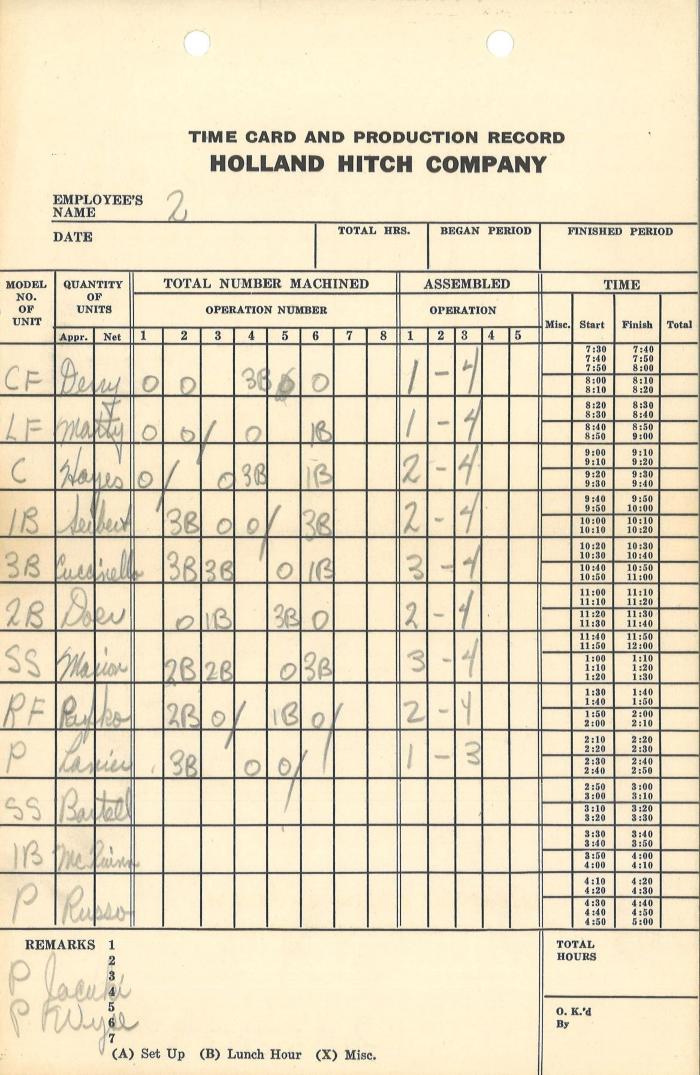 TIME CARD AND PRODUCTION RECORD
HOLLAND HITCH COMPANY
EMPLOYEE'S NAME 2
DATE TOTAL HRS. BEGAN PERIOD FINISHED PERIOD
MODEL NO. OF UNIT QUANTITY OF UNITS TOTAL NUMBER MACHINED ASSEMBLED TIME
OPERATION NUMBER OPERATION Misc. Start Finish Total
Appr. Net 1 2 3 4 5 6 7 8 1 2 3 4 5
CF Derry 0 0 3B 0 0 1 - 4
LF Matty 0 0/ 0 1B 1 - 4
C Hayes 0/ 0 3B 1B 2 - 4
1B Seibert 3B 0 0/ 3B 2 - 4
3B Cuccinello 3B 3B 0 1B 3 - 4
2B Doer 0 1B 3B 0 2 - 4
SS Marion 2B 2B 0 3B 3 - 4
RF 2B 0/ 1B 0/ 2 - 4
P Lanier 3B 0 0/ 1 - 3
SS Bartell
1B McQuinn
P Russo
7:30 7:40
7:40 7:50
7:50 8:00
8:00 8:10
8:10 8:20
8:20 8:30
8:30 8:40
8:40 8:50
8:50 9:00
9:00 9:10
9:10 9:20
9:20 9:30
9:30 9:40
9:40 9:50
9:50 10:00
10:00 10:10
10:10 10:20
10:20 10:30
10:30 10:40
10:40 10:50
10:50 11:00
11:00 11:10
11:10 11:20
11:20 11:30
11:30 11:40
11:40 11:50
11:50 12:00
1:00 1:10
1:10 1:20
1:20 1:30
1:30 1:40
1:40 1:50
1:50 2:00
2:00 2:10
2:10 2:20
2:20 2:30
2:30 2:40
2:40 2:50
2:50 3:00
3:00 3:10
3:10 3:20
3:20 3:30
3:30 3:40
3:40 3:50
3:50 4:00
4:00 4:10
4:10 4:20
4:20 4:30
4:30 4:40
4:40 4:50
4:50 5:00
REMARKS 1
2
3
P 4
5
P Wyse 6
7
(A) Set Up (B) Lunch Hour (X) Misc.
TOTAL HOURS
O. K.'d
By